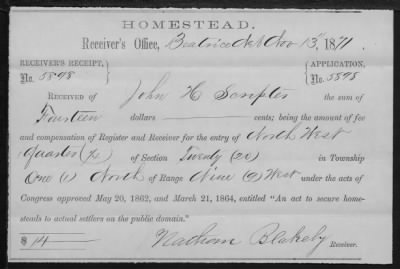 HOMESTEAD.
Receiver's Office, Beatrice Neb Nov 13" 1871.
RECEIVER'S RECEIPT, No. 5898
APPLICATION, No. 5898
RECEIVED OF John H Scripter the sum of
Fourteen dollars ——— cents; being the amount of fee
and compensation of Register and Receiver for the entry of North West
Quarter (¼) of Section Twenty (20) in Township
One (1) North of Range Nine (9) West under the acts of
Congress approved May 20, 1862, and March 21, 1864, entitled "An act to secure home-
steads to actual settlers on the public domain."
$ 14 —
Nathan Blakely Receiver.